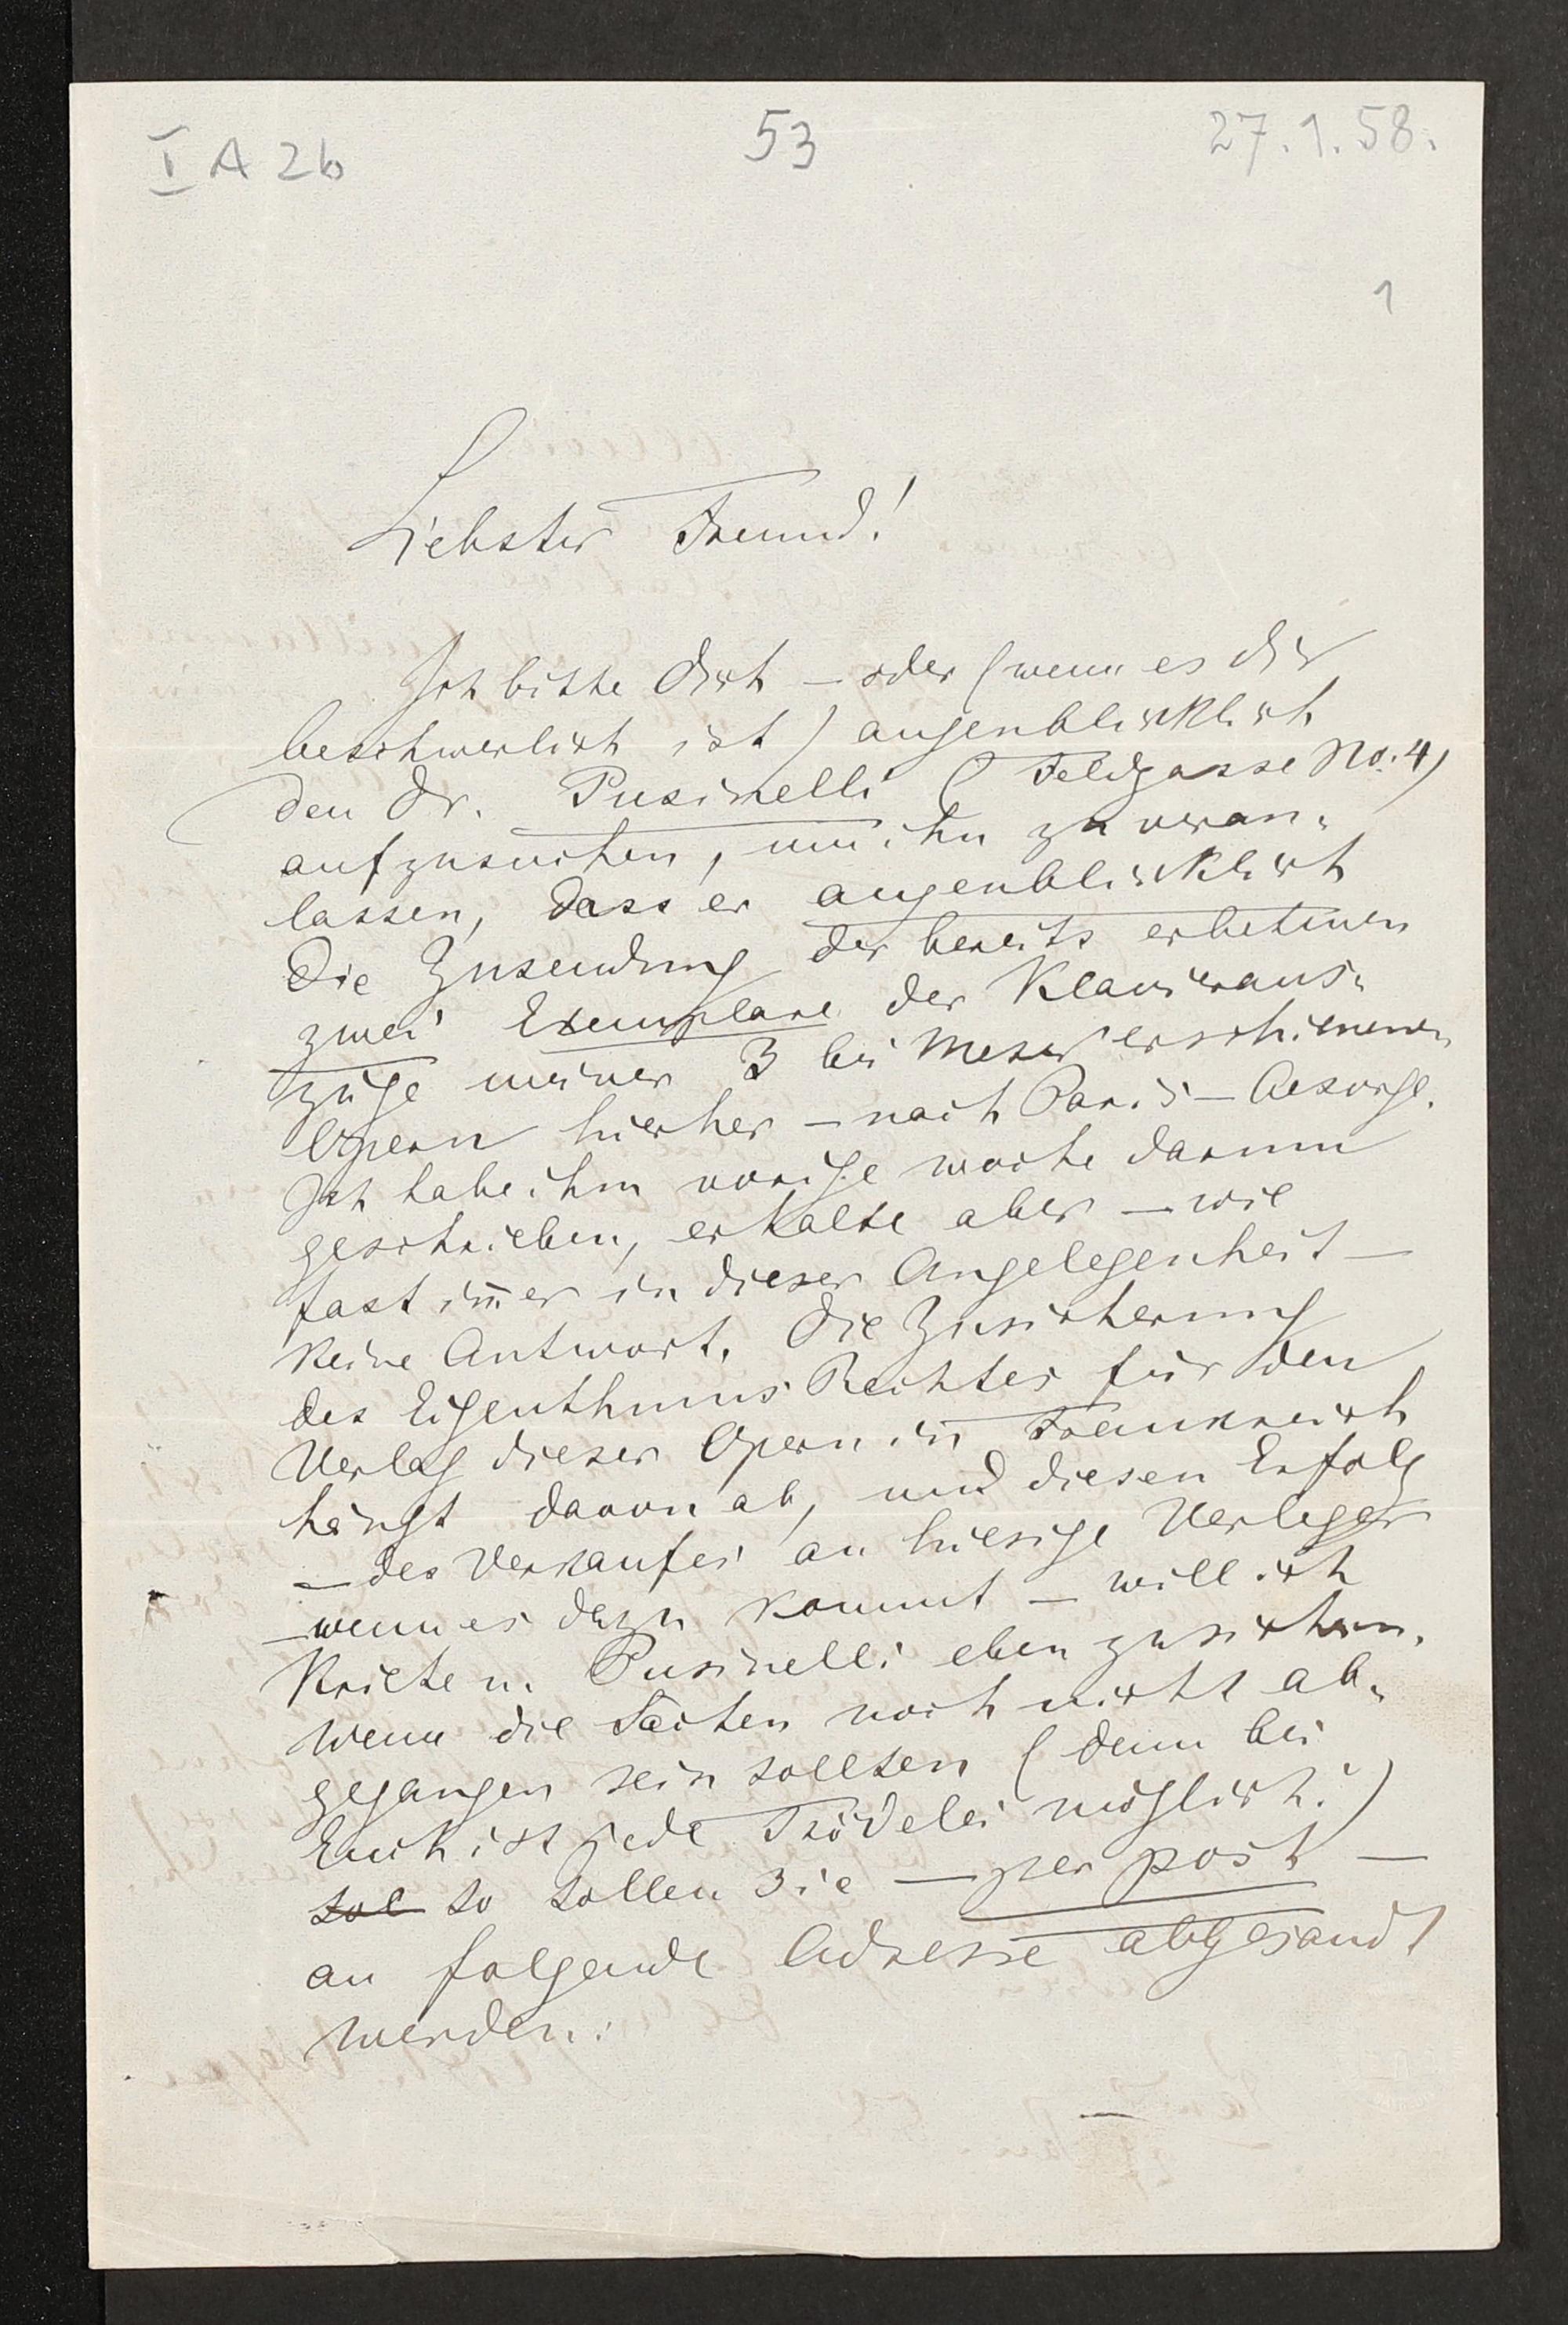 I A 2b
53
27.1.58.
1
Liebster Freund!
Ich bitte dich – oder (wenn es dir
beschwerlich ist) augenblicklich
den Dr. Pusinelli (Feldgasse No. 4)
aufzusuchen, um ihn zu veran-
lassen, dass er augenblicklich
die Zusendung der bereits erbetenen
zwei Exemplare der Klavieraus-
züge meiner 3 bei Meser erschienenen
Opern hierher – nach Paris – besorge.
Ich habe ihm vorige woche darum
geschrieben, erhalte aber – wie
fast im̅er in dieser Angelegenheit –
keine Antwort. Die Zusicherung
des Eigenthums Rechtes für den
Verlag dieser Opern in Frankreich
hängt davon ab, und diesen Erfolg
– des Verkaufes an hiesige Verleger
– wenn es dazu kommt – will ich
Kriete u. Pusinelli eben zusichern.
Wenn die Sachen noch nicht ab-
gegangen sein sollten (denn bei
Euch ist jede Trödelei möglich!)
sol so sollen sie – per post –
an folgende Adresse abgesandt
werden: